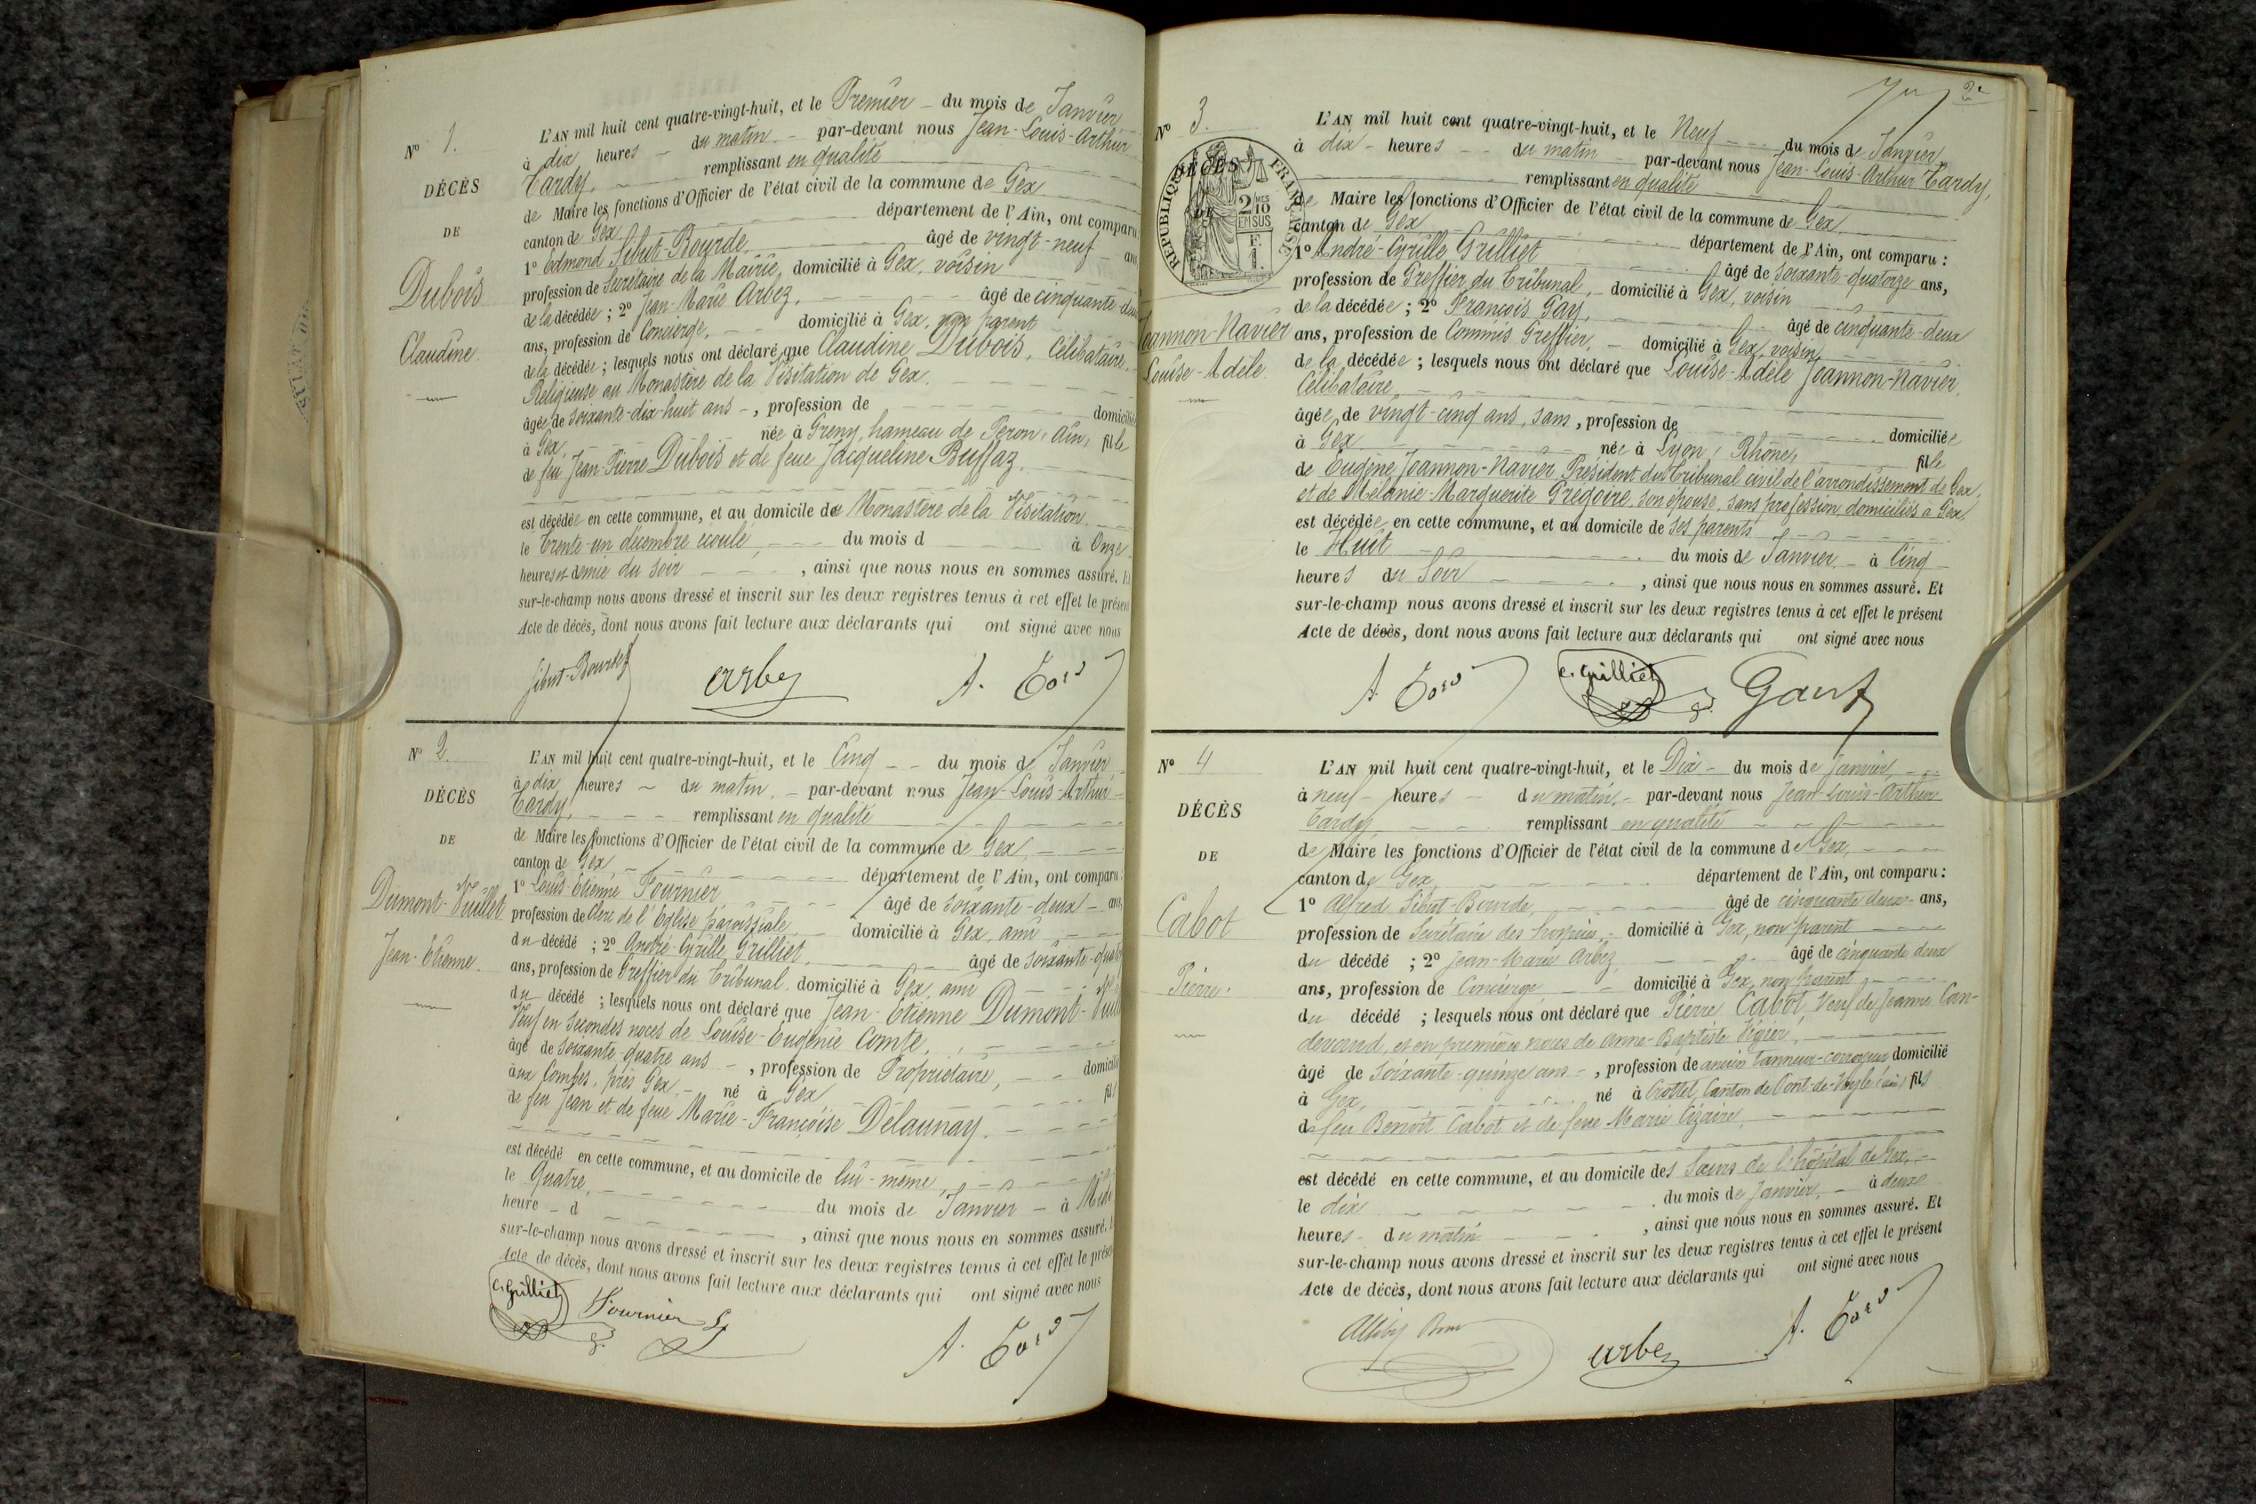 N° 1.
DÉCÈS
DE
Dubois
Claudine.
L'AN mil huit cent quatre-vingt-huit, et le Premier du mois de Janvier
à dix heures du matin par-devant nous Jean-Louis-Arthur
Tardy, remplissant en qualité
de Maire les fonctions d'Officier de l'état civil de la commune de Gex
canton de Gex département de l'Ain, ont comparu
1° Edmond Sibut-Bourde, âgé de vingt-neuf ans
profession de Secrétaire de la Mairie, domicilié à Gex, voisin
de la décédée ; 2° Jean-Marie Arbez, âgé de cinquante-deux
ans, profession de Concierge, domicilié à Gex, non parent
de la décédée ; lesquels nous ont déclaré que Claudine Dubois, Célibataire,
Religieuse au Monastère de la Visitation de Gex,
âgée de soixante-dix-huit ans, profession de domiciliée
à Gex, née à Greny, hameau de Peron, Ain, fille
de feu Jean-Pierre Dubois et de feue Jacqueline Buffaz,
est décédée en cette commune, et au domicile de Monastère de la Visitation
le trente-un décembre écoulé, du mois d à Onze
heures et demie du soir, ainsi que nous nous en sommes assuré. Et
sur-le-champ nous avons dressé et inscrit sur les deux registres tenus à cet effet le présent
Acte de décès, dont nous avons fait lecture aux déclarants qui ont signé avec nous
Sibut-Bourde arbez A. Tardy
N° 2.
DÉCÈS
DE
Dumont-Vuillet
Jean-Etienne.
L'AN mil huit cent quatre-vingt-huit, et le Cinq du mois de Janvier
à dix heures du matin, par-devant nous Jean-Louis-Arthur
Tardy, remplissant en qualité
de Maire les fonctions d'Officier de l'état civil de la commune de Gex,
canton de Gex département de l'Ain, ont comparu :
1° Louis-Etienne Fournier, âgé de soixante-deux ans,
profession de Clerc de l'Eglise paroissiale, domicilié à Gex, ami
du décédé ; 2° André-Cyrille Grilliet, âgé de soixante-quatorze
ans, profession de Greffier du Tribunal, domicilié à Gex, ami
du décédé ; lesquels nous ont déclaré que Jean-Etienne Dumont-Vuillet
Veuf en secondes noces de Louise-Eugénie Comte,
âgé de soixante-quatre ans, profession de Propriétaire, domicilié
aux Combes, près Gex, né à Gex fils
de feu Jean et de feue Marie-Françoise Delaunay,
est décédé en cette commune, et au domicile de lui-même,
le Quatre, du mois de Janvier à Midi
heure d , ainsi que nous nous en sommes assuré. Et
sur-le-champ nous avons dressé et inscrit sur les deux registres tenus à cet effet le présent
Acte de décès, dont nous avons fait lecture aux déclarants qui ont signé avec nous
C. Grilliet Fournier A. Tardy
2e
N° 3.
DÉCÈS
DE
RÉPUBLIQUE FRANÇAISE
2/10 EN SUS
Joannon-Navier
Louise-Adèle.
L'AN mil huit cent quatre-vingt-huit, et le Neuf du mois de Janvier
à dix heures du matin par-devant nous Jean-Louis-Arthur Tardy,
remplissant en qualité
de Maire les fonctions d'Officier de l'état civil de la commune de Gex
canton de Gex département de l'Ain, ont comparu :
1° André-Cyrille Grilliet âgé de soixante-quatorze ans,
profession de Greffier du Tribunal, domicilié à Gex, voisin
de la décédée ; 2° François Gay, âgé de cinquante-deux
ans, profession de Commis Greffier, domicilié à Gex, voisin
de la décédée ; lesquels nous ont déclaré que Louise-Adèle Joannon-Navier,
Célibataire,
âgée de vingt-cinq ans, sans, profession de domiciliée
à Gex née à Lyon, Rhône, fille
de Eugène Joannon-Navier, Président du Tribunal civil de l'arrondissement de Gex,
et de Mélanie-Marguerite Grégoire, son épouse, sans profession, domiciliés à Gex,
est décédée en cette commune, et au domicile de ses parents
le Huit du mois de Janvier à Cinq
heures du Soir, ainsi que nous nous en sommes assuré. Et
sur-le-champ nous avons dressé et inscrit sur les deux registres tenus à cet effet le présent
Acte de décès, dont nous avons fait lecture aux déclarants qui ont signé avec nous
A. Tardy C. Grilliet Gay f
N° 4
DÉCÈS
DE
Cabot
Pierre.
L'AN mil huit cent quatre-vingt-huit, et le Dix du mois de Janvier,
à neuf heures du matin, par-devant nous Jean-Louis-Arthur
Tardy, remplissant en qualité
de Maire les fonctions d'Officier de l'état civil de la commune de Gex,
canton de Gex, département de l'Ain, ont comparu :
1° Alfred Sibut-Bourde, âgé de cinquante deux ans,
profession de Secrétaire des hospices, domicilié à Gex, non parent
du décédé ; 2° Jean-Marie Arbez, âgé de cinquante deux
ans, profession de Concierge, domicilié à Gex, non parent,
du décédé ; lesquels nous ont déclaré que Pierre Cabot, Veuf de Jeanne Can-
et en premières noces de Anne-Baptiste
âgé de soixante-quinze ans, profession de ancien tanneur-corroyeur domicilié
à Gex, né à Crottet, Canton de Pont-de-Veyle (ain) fils
de feu Benoît Cabot et de feue Marie
est décédé en cette commune, et au domicile des Sœurs de l'hôpital de Gex,
le dix du mois de Janvier, à deux
heures du matin, ainsi que nous nous en sommes assuré. Et
sur-le-champ nous avons dressé et inscrit sur les deux registres tenus à cet effet le présent
Acte de décès, dont nous avons fait lecture aux déclarants qui ont signé avec nous
arbez A. Tardy